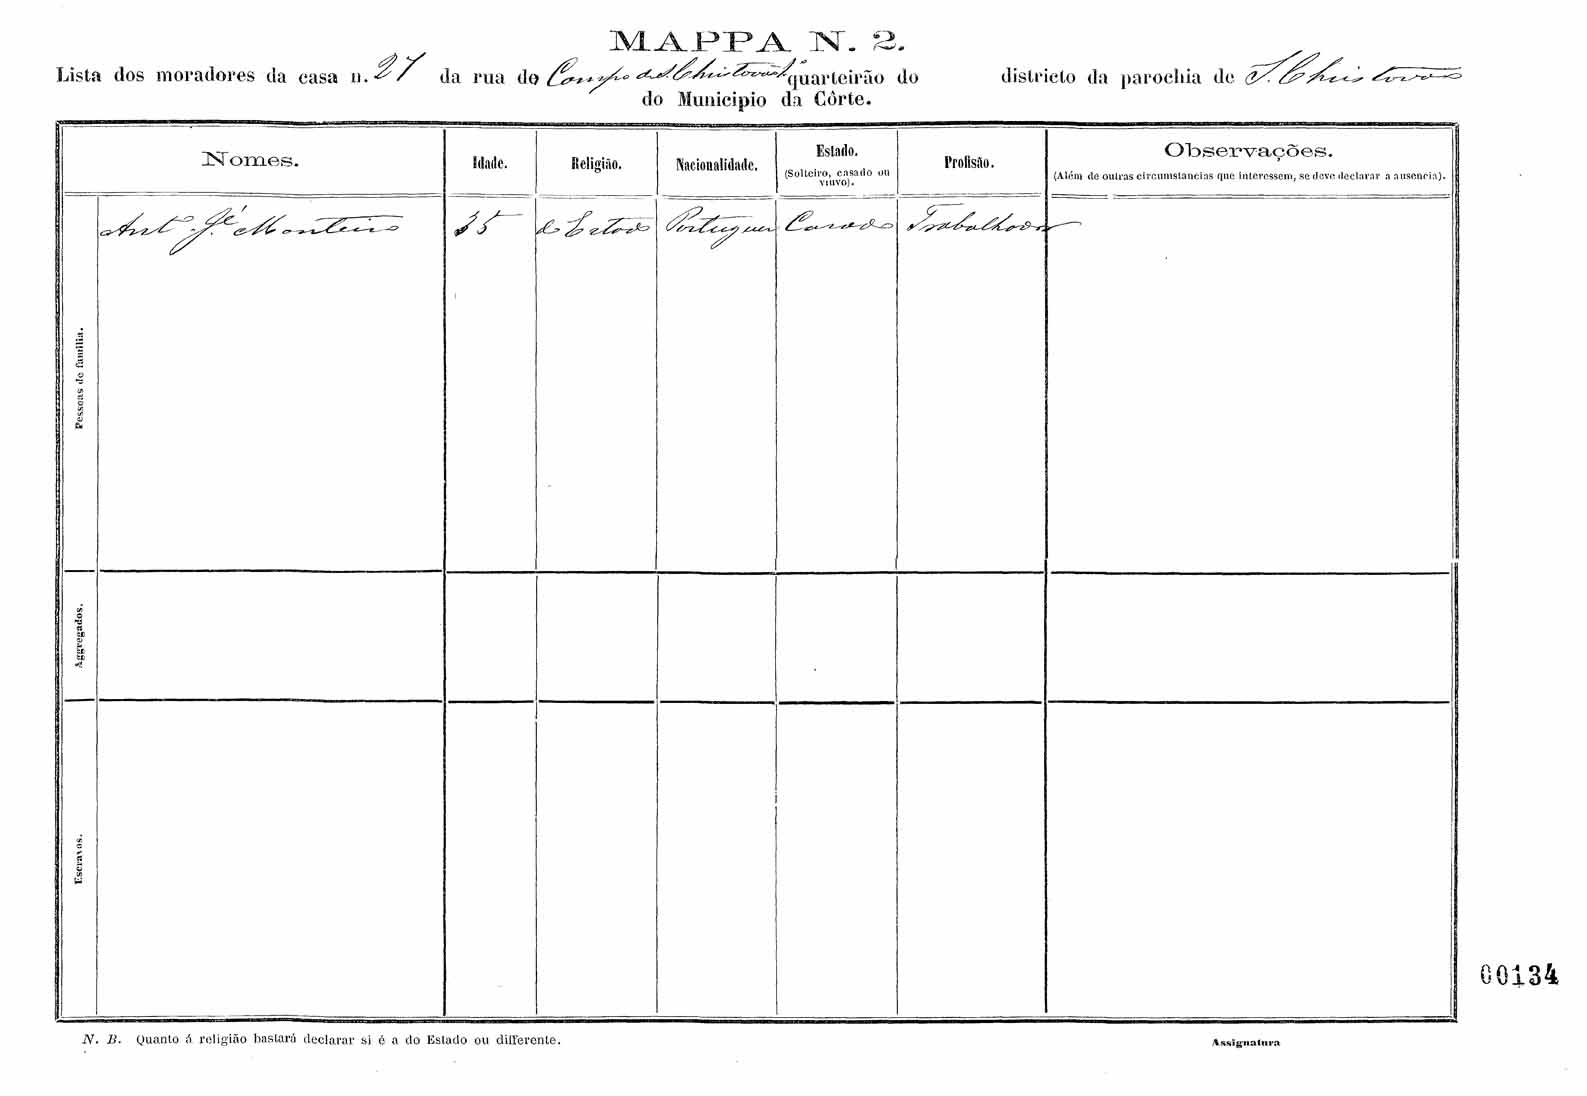 MAPPA N. 2.
Lista dos moradores da casa n. 27 da rua do Campo de S. Christovão 1º quarteirão do districto da parochia de S. Christovão
do Municipio da Côrte.
Nomes. Idade. Religião. Nacionalidade. Estado. (Solteiro, casado ou viuvo). Profisão. Observações. (Além de outras circumstancias que interessem, se deve declarar a ausencia).
Pessoas de familia.
Antº Jé Monteiro 35 do Estado Portuguez Casado Trabalhador
Aggregados.
Escravos.
00134
N. B. Quanto á religião bastará declarar si é a do Estado ou differente.
Assignatura